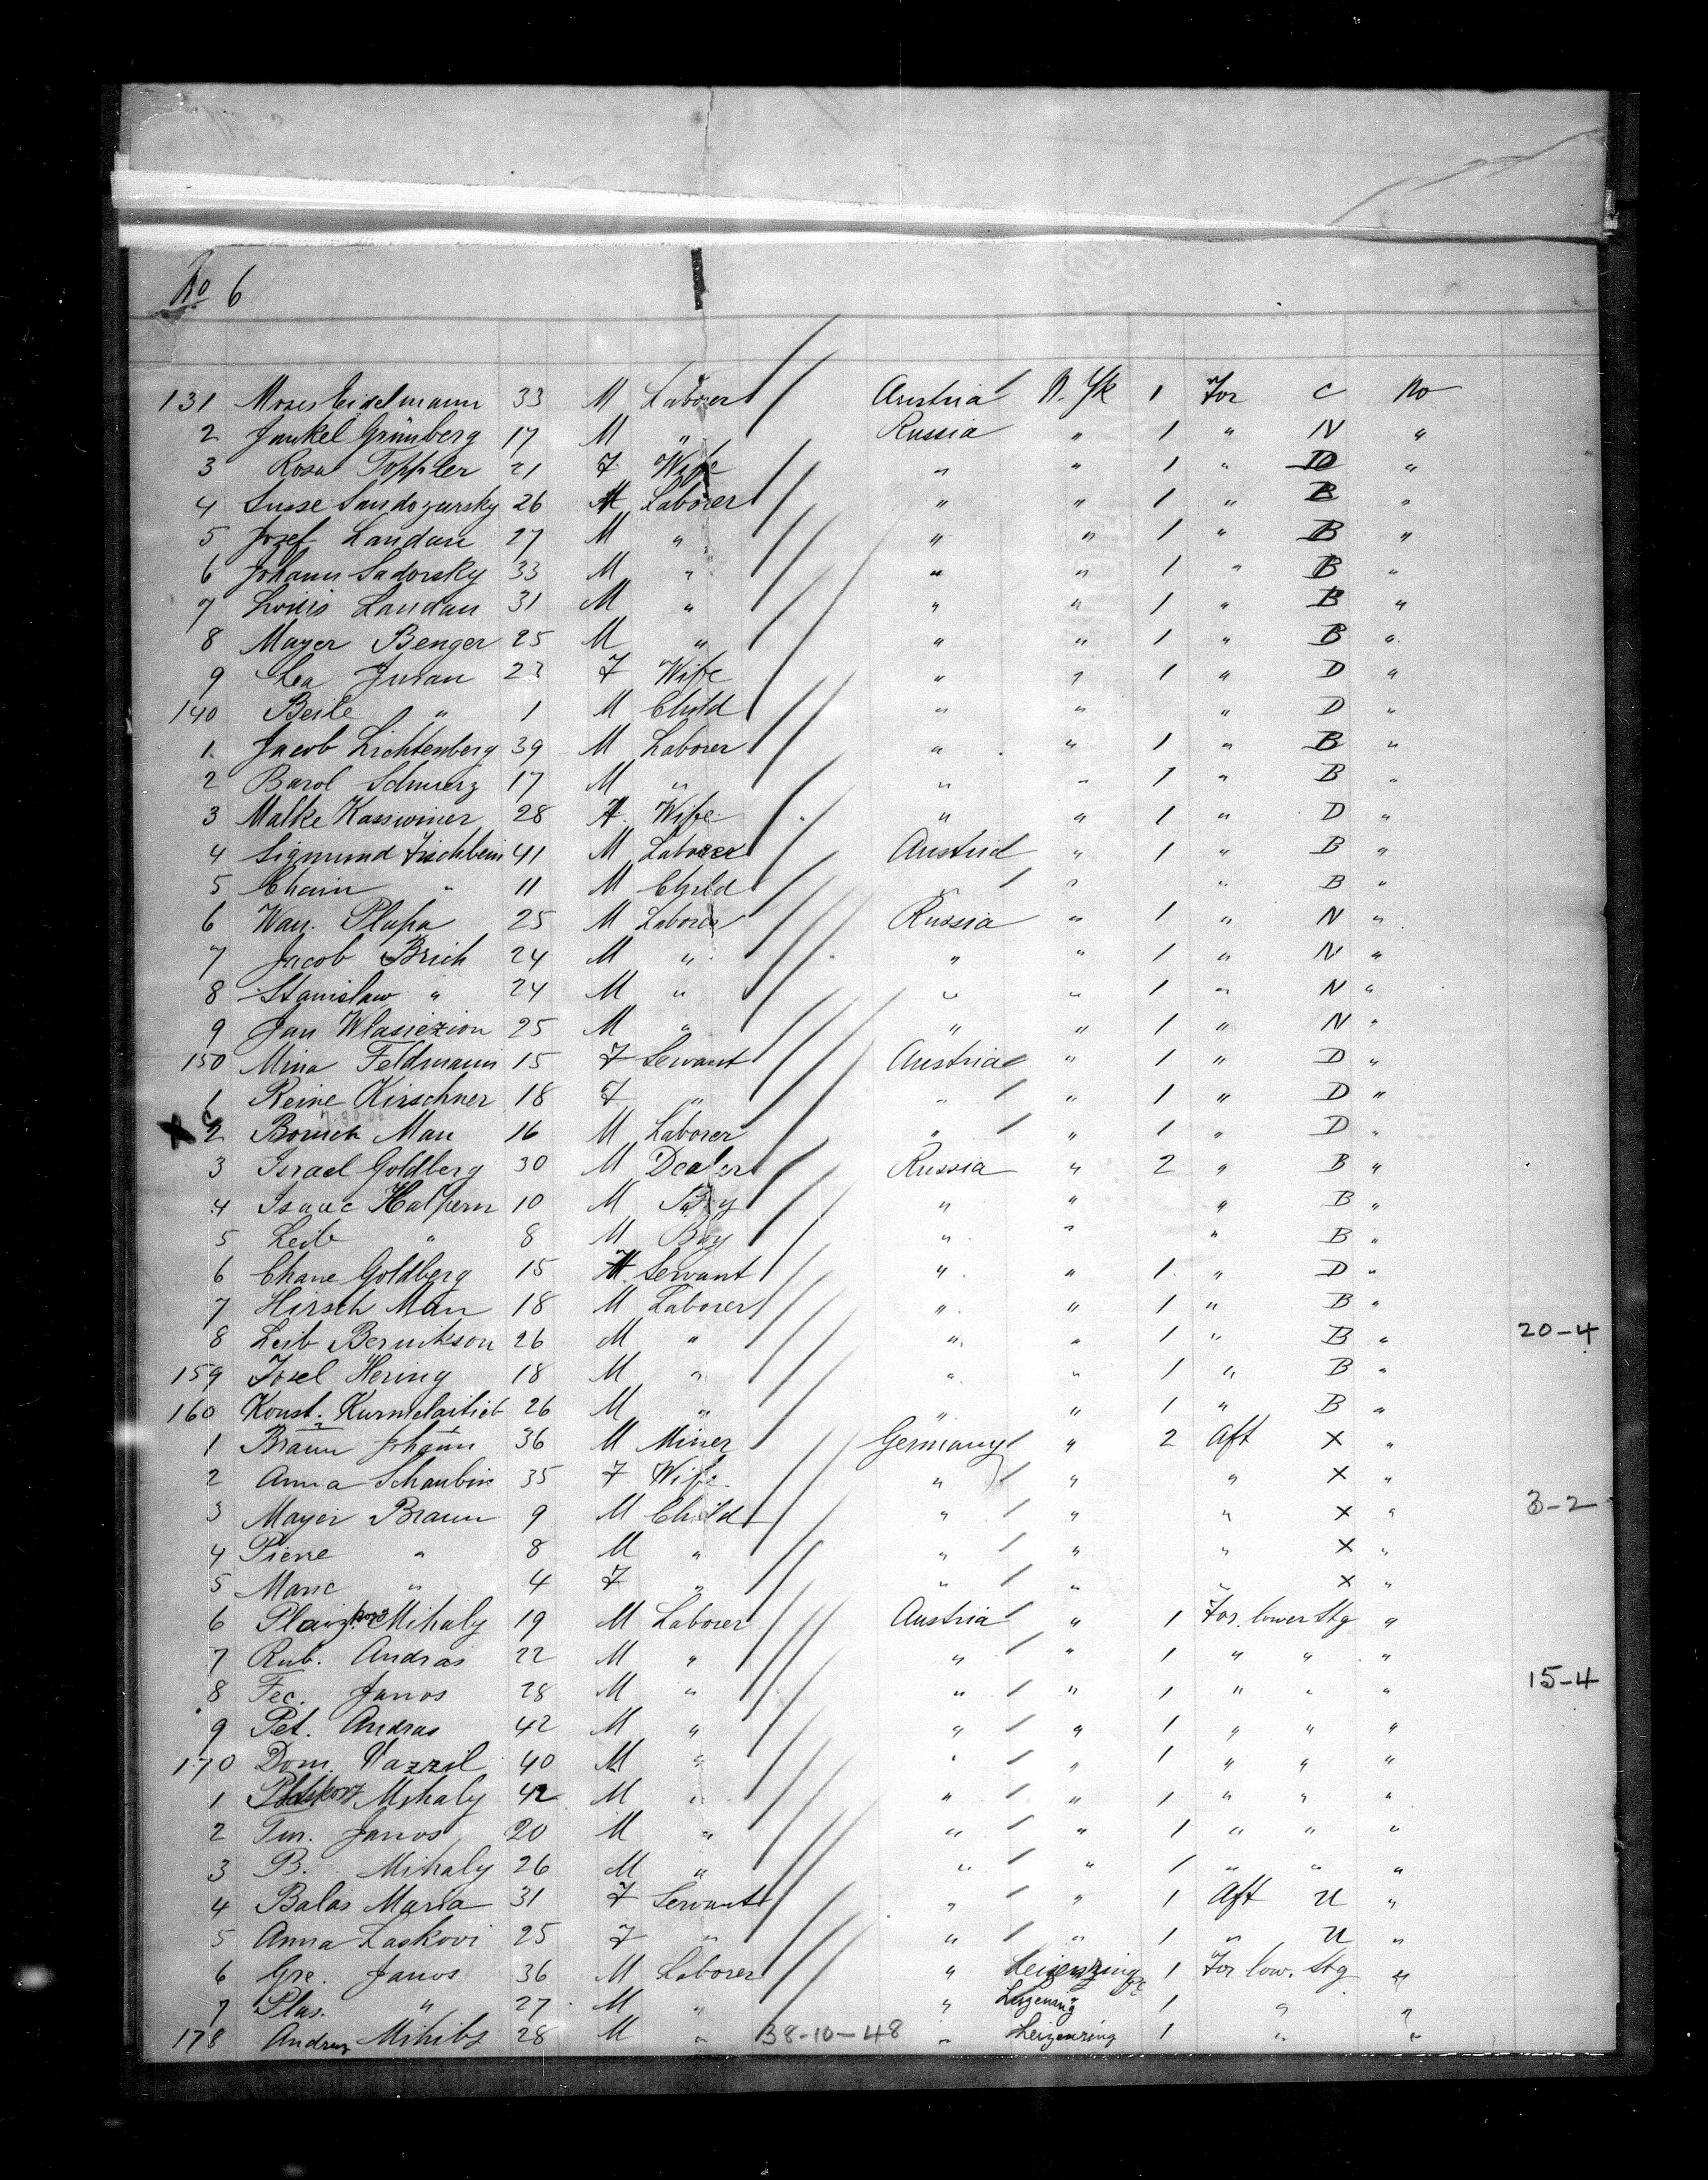 No 6
131 Moses Eidelmann 33 M Laborer Austria N. Yk 1 For C No
2 Jankel Grünberg 17 M " Russia " 1 " N "
3 Rosa Toppler 21 F Wife " " 1 " D "
4 Susse 26 M Laborer " " 1 " B "
5 Josef Landau 27 M " " " 1 " B "
6 Johann Sadorsky 33 M " " " 1 " B "
7 Louis Landau 31 M " " " 1 " B "
8 Mayer Benger 25 M " " " 1 " B "
9 Lea Juran 23 F Wife " " 1 " D "
140 Beile " 1 M Child " " " D "
1. Jacob Lichtenberg 39 M Laborer " " 1 " B "
2 Barol Schmerz 17 M " " " 1 " B "
3 Malke Kasswiner 28 F. Wife " " 1 " D "
4 Sigmund Fischbein 41 M Laborer Austria " 1 " B "
5 Chain " 11 M Child " " " B "
6 Wan. Plupa 25 M Laborer Russia " 1 " N "
7 Jacob Brich 24 M " " " 1 " N "
8 Stanislaw " 24 M " " " 1 " N "
9 Jan Wlasiezion 25 M " " " 1 " N "
150 Mina Feldmann 15 F Servant Austria " 1 " D "
1 Reine Kirschner 18 F " " " 1 " D "
X 2 Boruch Man 16 M Laborer " " 1 " D "
3 Israel Goldberg 30 M Dealer Russia " 2 " B "
4 Isaac Halpern 10 M Boy " " " B "
5 Leib " 8 M Boy " " " B "
6 Chane Goldberg 15 F. Servant " " 1 " D "
7 Hirsch Man 18 M Laborer " " 1 " B "
8 Leib Bernikson 26 M " " " 1 " B " 20-4
159 Josel Hering 18 M " " " 1 " B "
160 Konst. 26 M " " " 1 " B "
1 Braun Johann 36 M Miner Germany " 2 Aft X "
2 Anna Schaubin 35 F Wife " " " X "
3 Mayer Braun 9 M Child " " " X " 3-2
4 Pierre " 8 M " " " " X "
5 Marie " 4 F " " " " X "
6 Mihaly 19 M Laborer Austria " 1 For. lower Stg "
7 Rub. Andras 22 M " " " 1 " " "
8 Fec. Janos 28 M " " " 1 " " " 15-4
9 Pet. Andras 42 M " " " 1 " " "
170 Dom. Vazzil 40 M " " " 1 " " "
1 Mihaly 42 M " " " 1 " " "
2 Tur. Janos 20 M " " " 1 " " "
3 B. Mihaly 26 M " " " 1 " " "
4 Balas Maria 31 F Servant " " 1 Aft U "
5 Anna Laskovi 25 F " " " 1 " U "
6 Gre. Janos 36 M Laborer " Leizenring 1 For low. Stg "
7 Plas. " 27 M " " Leizenring 1 " "
178 Andras 28 M " 38-10-48 " Leizenring 1 " "